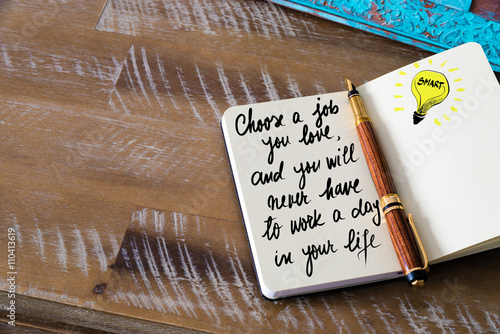 Choose a job
you love,
and you will
never have
to work a day
in your life
SMART
110413619